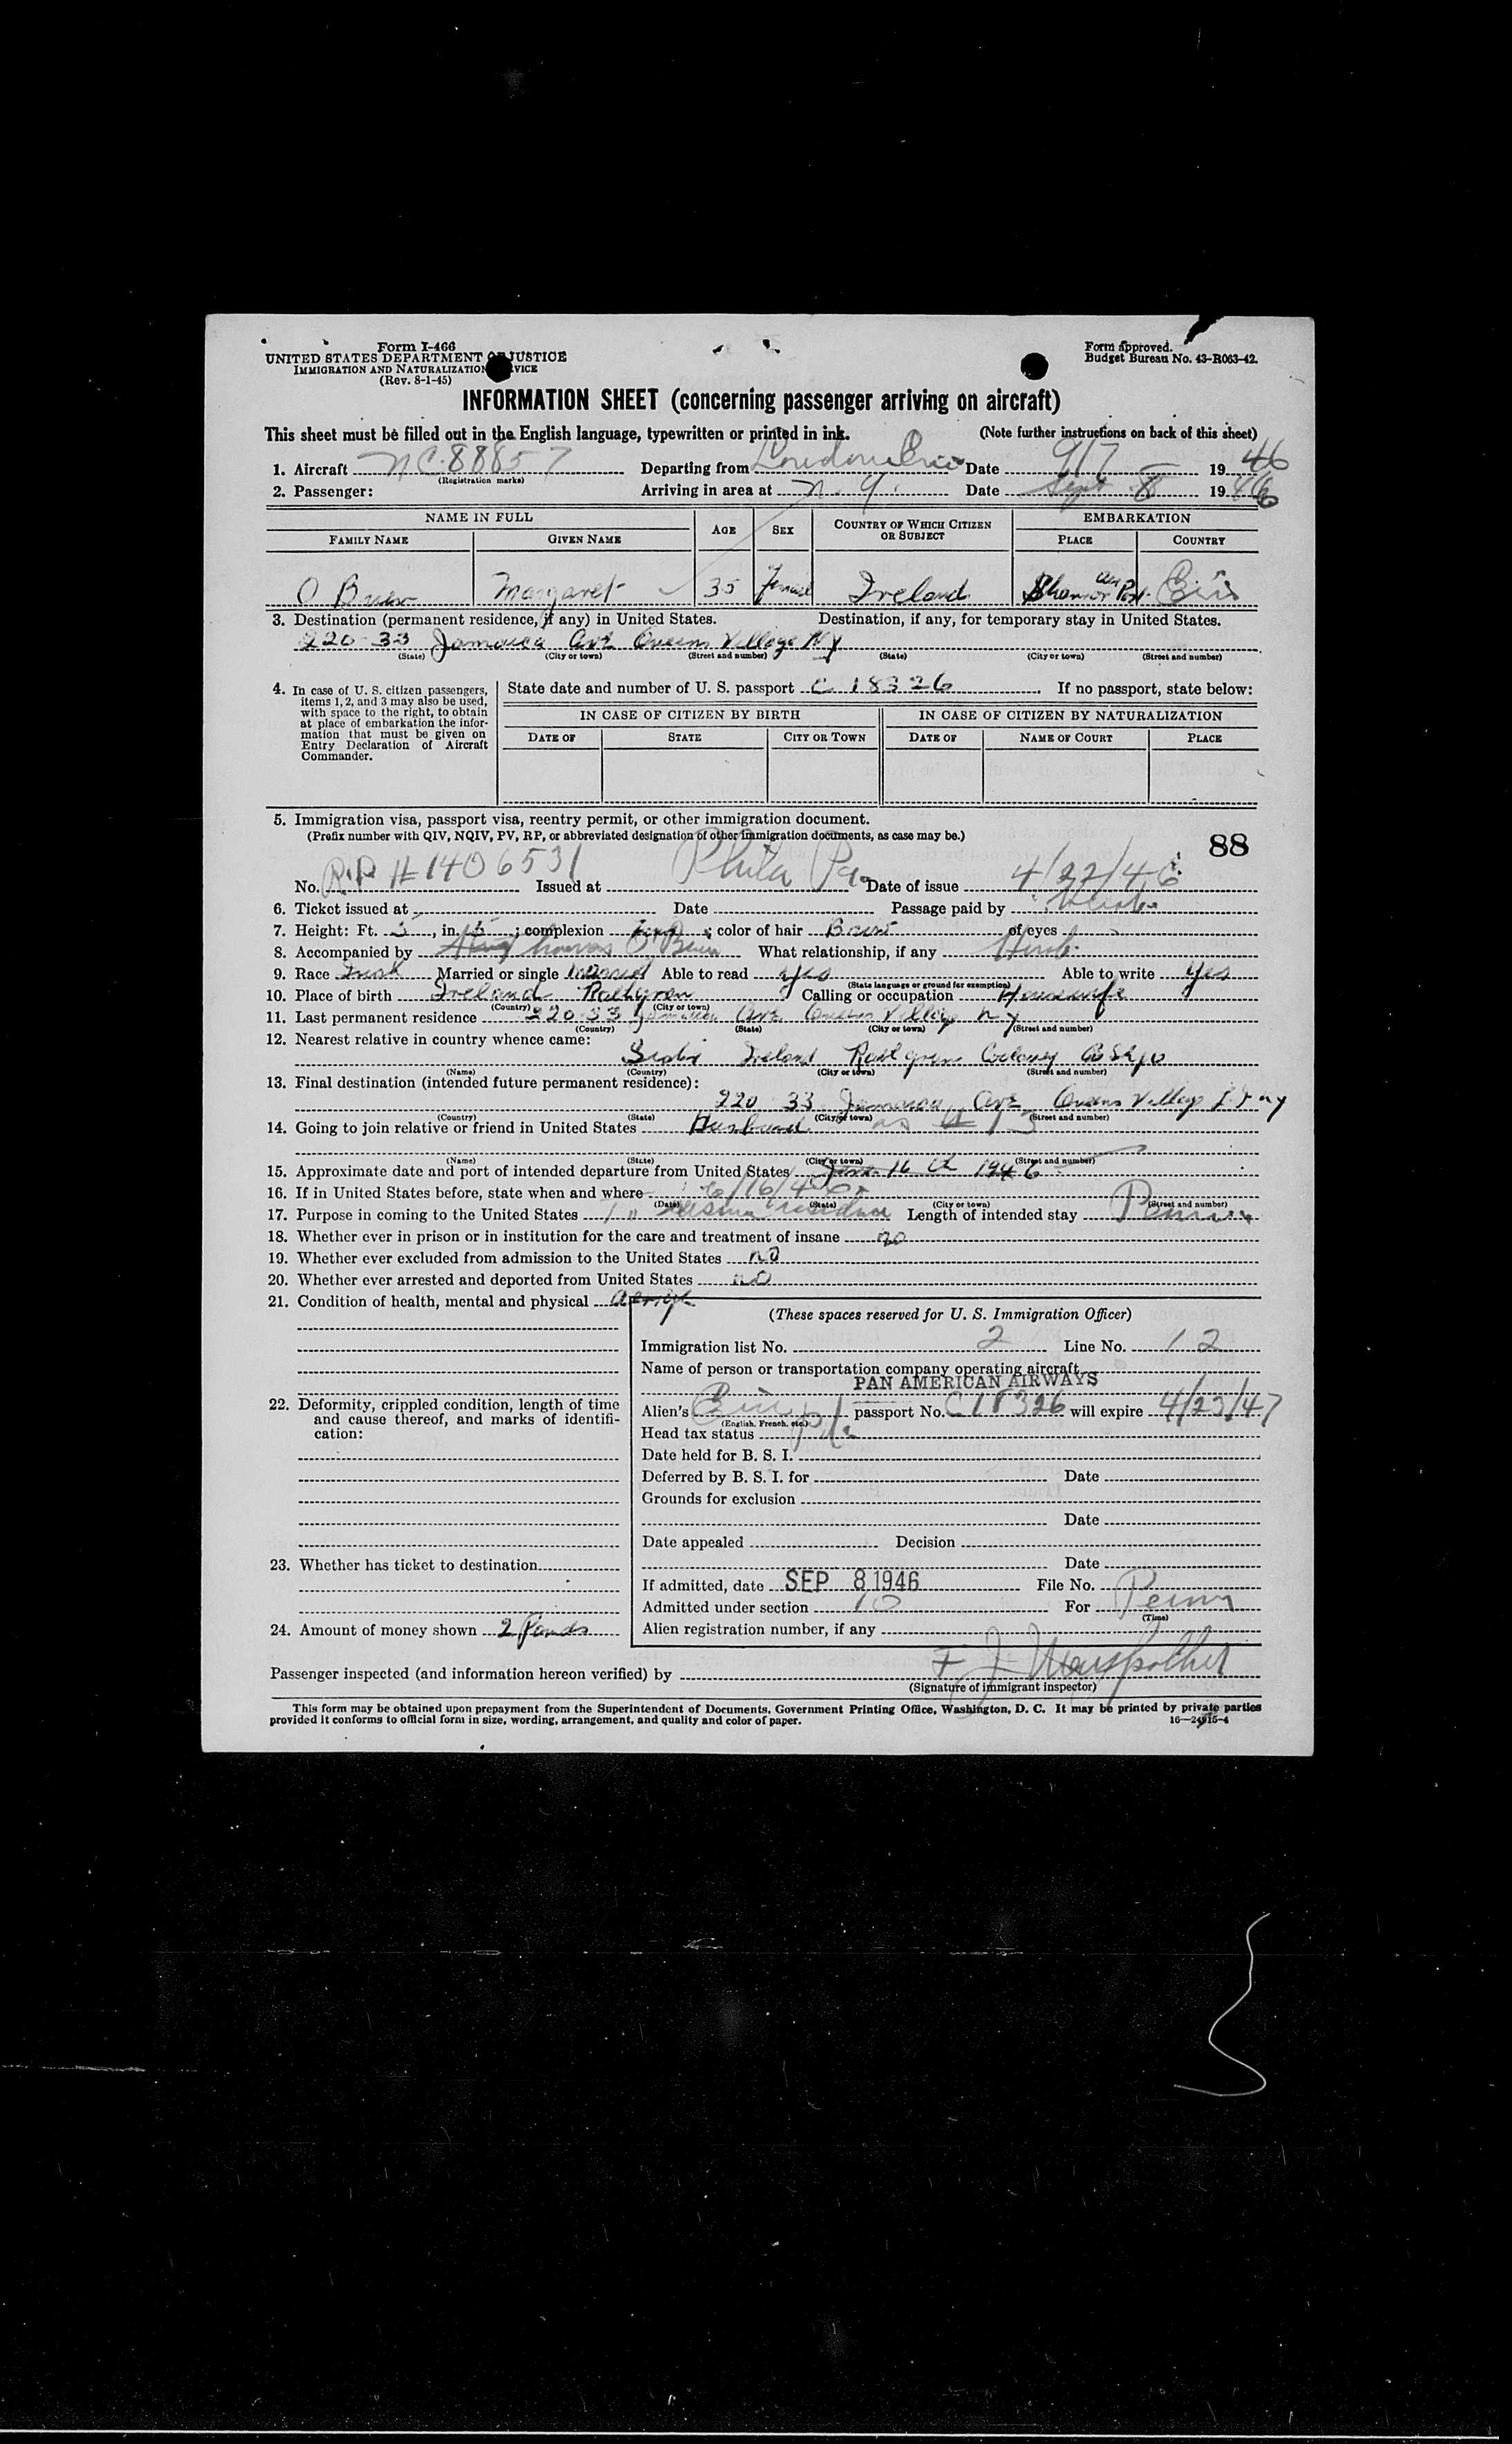 Form I-466
UNITED STATES DEPARTMENT OF JUSTICE
IMMIGRATION AND NATURALIZATION SERVICE
(Rev. 8-1-45)
Form approved.
Budget Bureau No. 43-R063-42.
INFORMATION SHEET (concerning passenger arriving on aircraft)
This sheet must be filled out in the English language, typewritten or printed in ink. (Note further instructions on back of this sheet)
1. Aircraft NC 88857 Departing from London Date 9/7 1946
(Registration marks)
2. Passenger: Arriving in area at N.Y. Date Sept 8 1946
NAME IN FULL AGE SEX COUNTRY OF WHICH CITIZEN OR SUBJECT EMBARKATION
FAMILY NAME GIVEN NAME PLACE COUNTRY
O Brien Margaret 35 Female Ireland Shannon Air Port Eire
3. Destination (permanent residence, if any) in United States. Destination, if any, for temporary stay in United States.
220-33 Jamaica Ave Queens Village NY
(State) (City or town) (Street and number) (State) (City or town) (Street and number)
4. In case of U. S. citizen passengers, items 1, 2, and 3 may also be used, with space to the right, to obtain at place of embarkation the information that must be given on Entry Declaration of Aircraft Commander.
State date and number of U. S. passport C 18326 If no passport, state below:
IN CASE OF CITIZEN BY BIRTH IN CASE OF CITIZEN BY NATURALIZATION
DATE OF STATE CITY OR TOWN DATE OF NAME OF COURT PLACE
5. Immigration visa, passport visa, reentry permit, or other immigration document.
(Prefix number with QIV, NQIV, PV, RP, or abbreviated designation of other immigration documents, as case may be.)
88
No. R.P. # 1406531 Issued at Phila Pa. Date of issue 4/22/46
6. Ticket issued at Date Passage paid by
7. Height: Ft. 5, in. 5; complexion ; color of hair of eyes
8. Accompanied by Thomas O'Brien What relationship, if any Husb.
9. Race Irish Married or single Married Able to read yes Able to write yes
(State language or ground for exemption)
10. Place of birth Ireland Calling or occupation Housewife
(Country) (City or town)
11. Last permanent residence 220 33 Jamaica Ave Queens Village NY
(Country) (State) (City or town) (Street and number)
12. Nearest relative in country whence came:
Sister Ireland
(Name) (Country) (City or town) (Street and number)
13. Final destination (intended future permanent residence):
220 33 Jamaica Ave Queens Village
(Country) (State) (City or town) (Street and number)
14. Going to join relative or friend in United States Husband as # 13
(Name) (State) (City or town) (Street and number)
15. Approximate date and port of intended departure from United States June 16 1946
16. If in United States before, state when and where 6/16/46
(Date) (State) (City or town) (Street and number)
17. Purpose in coming to the United States To resume residence Length of intended stay Perm
18. Whether ever in prison or in institution for the care and treatment of insane no
19. Whether ever excluded from admission to the United States no
20. Whether ever arrested and deported from United States no
21. Condition of health, mental and physical
(These spaces reserved for U. S. Immigration Officer)
Immigration list No. 2 Line No. 12
Name of person or transportation company operating aircraft
PAN AMERICAN AIRWAYS
22. Deformity, crippled condition, length of time and cause thereof, and marks of identification:
Alien's Eire passport No. C18326 will expire 4/23/47
(English, French, etc.)
Head tax status
Date held for B. S. I.
Deferred by B. S. I. for Date
Grounds for exclusion
Date
Date appealed Decision
23. Whether has ticket to destination
Date
If admitted, date SEP 8 1946 File No.
Admitted under section 10 For Perm
(Time)
24. Amount of money shown 2 Pounds
Alien registration number, if any
Passenger inspected (and information hereon verified) by F J
(Signature of immigrant inspector)
This form may be obtained upon prepayment from the Superintendent of Documents, Government Printing Office, Washington, D. C. It may be printed by private parties
provided it conforms to official form in size, wording, arrangement, and quality and color of paper.